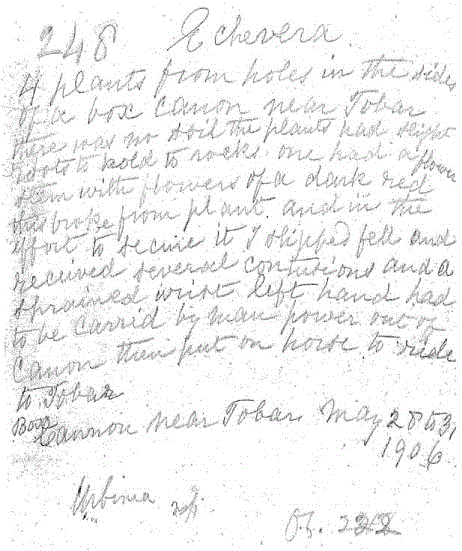 248 Echevera
4 plants from holes in the sides
of a box Canon near Tobar
there was no soil the plants had slight
roots to hold to rocks. one had a flower
stem with flowers of a dark red
this broke from plant. and in the
effort to secure it I slipped fell and
received several contusions and a
sprained wrist left hand had
to be Carrid by man power out of
Canon then put on horse to ride
to Tobar
Box
Cannon near Tobar. May 28 to 31
1906
Urbinia sp.